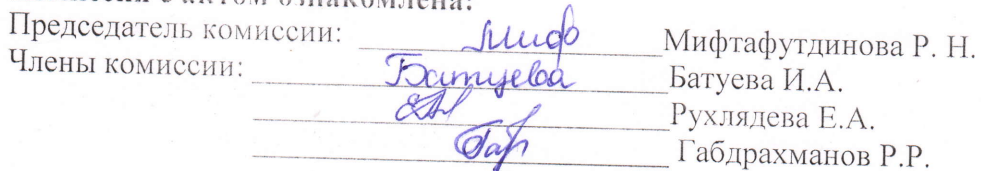 с актом ознакомлена:
Председатель комиссии: Миф Мифтафутдинова Р. Н.
Члены комиссии: Батуева Батуева И.А.
Рухлядева Е.А.
Габ Габдрахманов Р.Р.